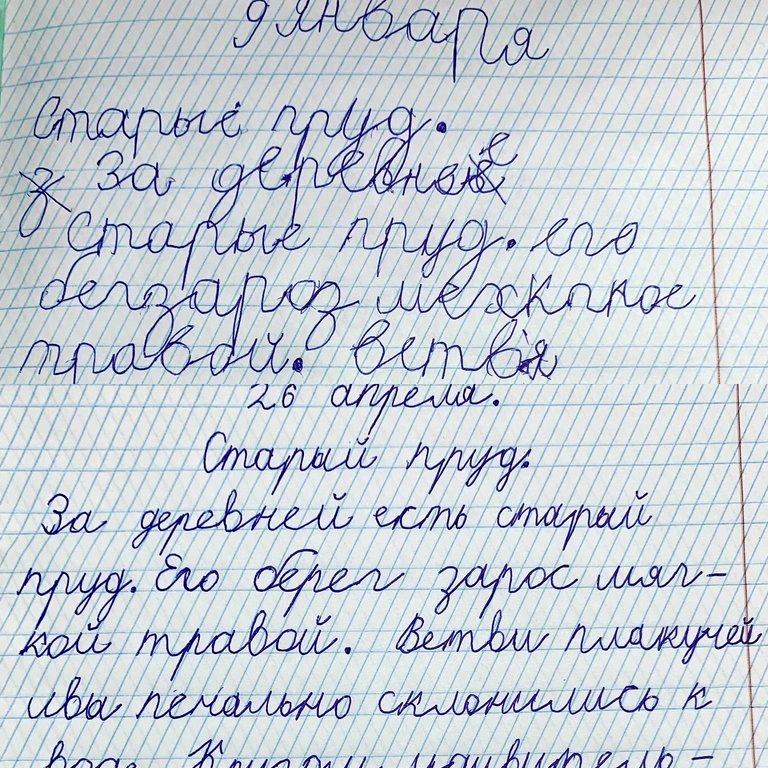 9 января
Старые пруд.
За деревне
Старые пруд. его
бегзароз мехкпкое
травой. ветвя
26 апреля.
Старый пруд.
За деревней есть старый
пруд. Его берег зарос мяг-
кой травой. Ветви плакучей
ивы печально склонились к
воде. Кругом удивитель-